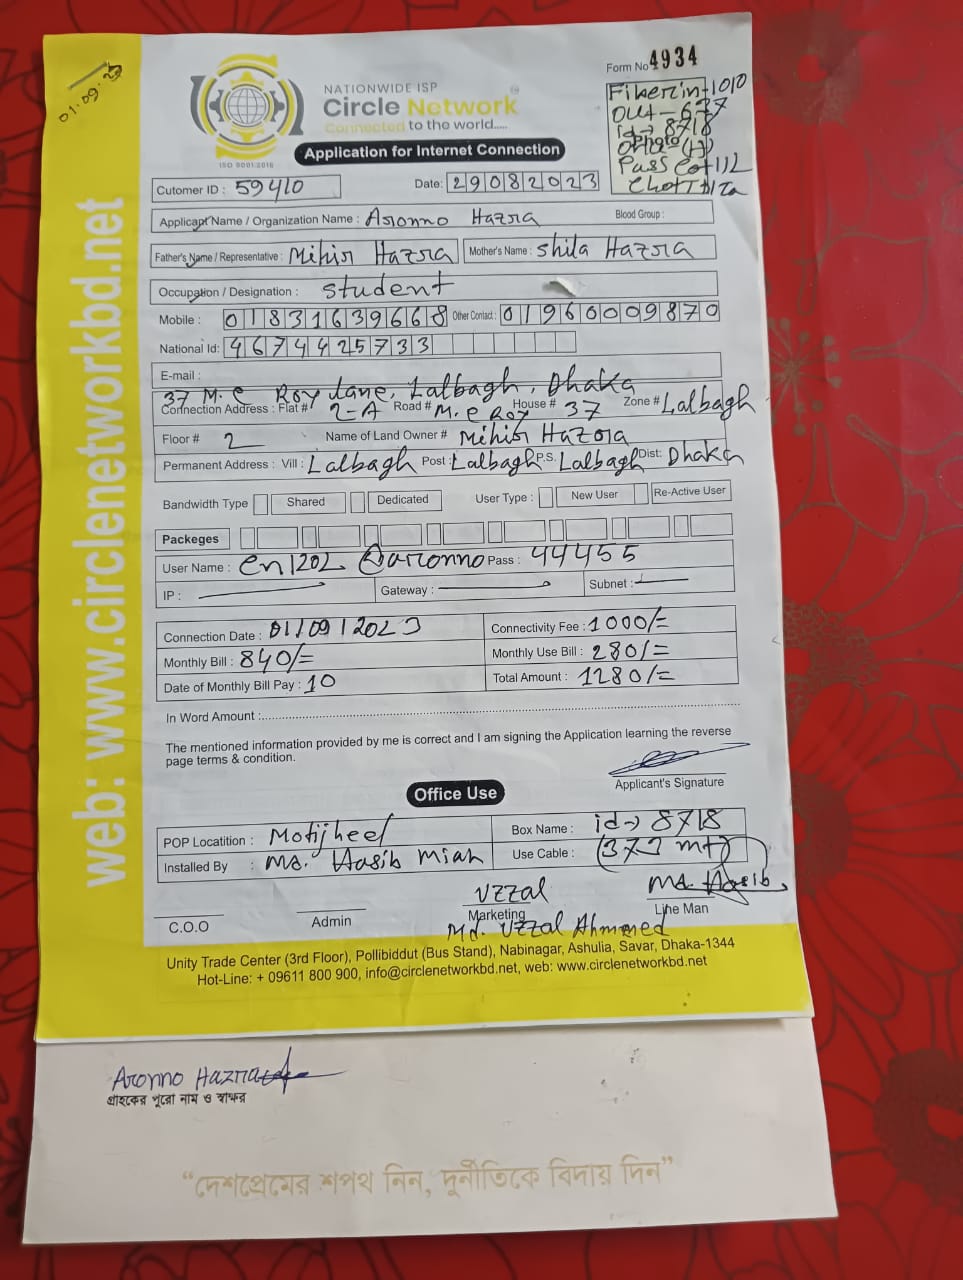 01.09.23
NATIONWIDE ISP
Circle Network
Connected to the world.....
ISO 9001:2015
Application for Internet Connection
Form No 4934
Fiber in-1010
Out - 677
id→ 8718
Pass
Cutomer ID : 59410
Date: 29082023
Applicant Name / Organization Name : Aronno Hazra
Blood Group :
Father's Name / Representative : Mihir Hazra
Mother's Name : Shila Hazra
Occupation / Designation : Student
Mobile : 01831639668 Other Contact : 01960009870
National Id: 4674425733
E-mail :
37 M.C Roy lane, Lalbagh, Dhaka
Connection Address : Flat # 2-A Road # M.C Roy House # 37 Zone # Lalbagh
Floor # 2 Name of Land Owner # Mihir Hazra
Permanent Address : Vill : Lalbagh Post : Lalbagh P.S. Lalbagh Dist: Dhaka
Bandwidth Type Shared Dedicated User Type : New User Re-Active User
Packeges
User Name : cn1202 @aronno Pass : 44455
IP : Gateway : Subnet :
Connection Date : 01/09/2023 Connectivity Fee : 1000/=
Monthly Bill : 840/= Monthly Use Bill : 280/=
Date of Monthly Bill Pay : 10 Total Amount : 1280/=
In Word Amount :
The mentioned information provided by me is correct and I am signing the Application learning the reverse
page terms & condition.
Applicant's Signature
Office Use
POP Locatition : Motijheel Box Name : id→ 8718
Installed By : Md. Hasib Miah Use Cable : (372 mt)
Uzzal Md. Hasib
C.O.O Admin Marketing Line Man
Md. Uzzal Ahmmed
Unity Trade Center (3rd Floor), Pollibiddut (Bus Stand), Nabinagar, Ashulia, Savar, Dhaka-1344
Hot-Line: + 09611 800 900, info@circlenetworkbd.net, web: www.circlenetworkbd.net
web: www.circlenetworkbd.net
Aronno Hazra
গ্রাহকের পুরো নাম ও স্বাক্ষর
“দেশপ্রেমের শপথ নিন, দুর্নীতিকে বিদায় দিন”